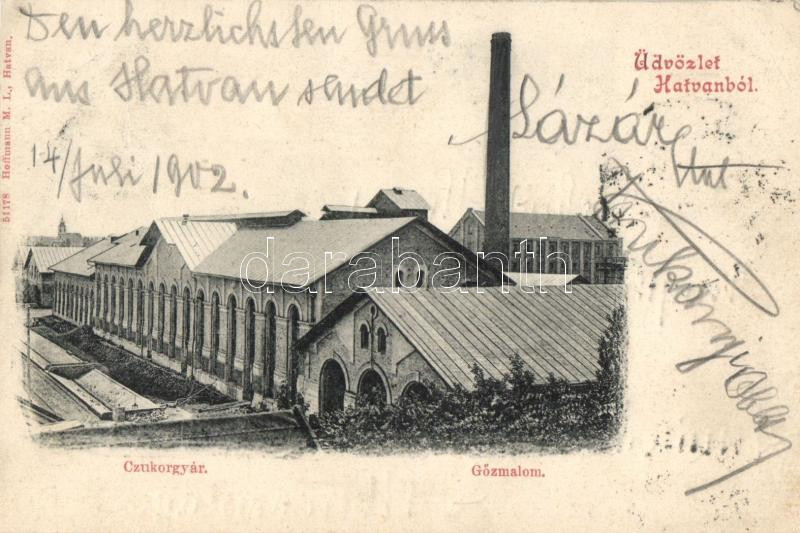 Den herzlichsten Gruss
aus Hatvan sendet
Lázár
14/Juli 1902.
Üdvözlet
Hatvanból.
51178 Hoffmann M. L., Hatvan.
darabanth.com
Czukorgyár.
Gőzmalom.